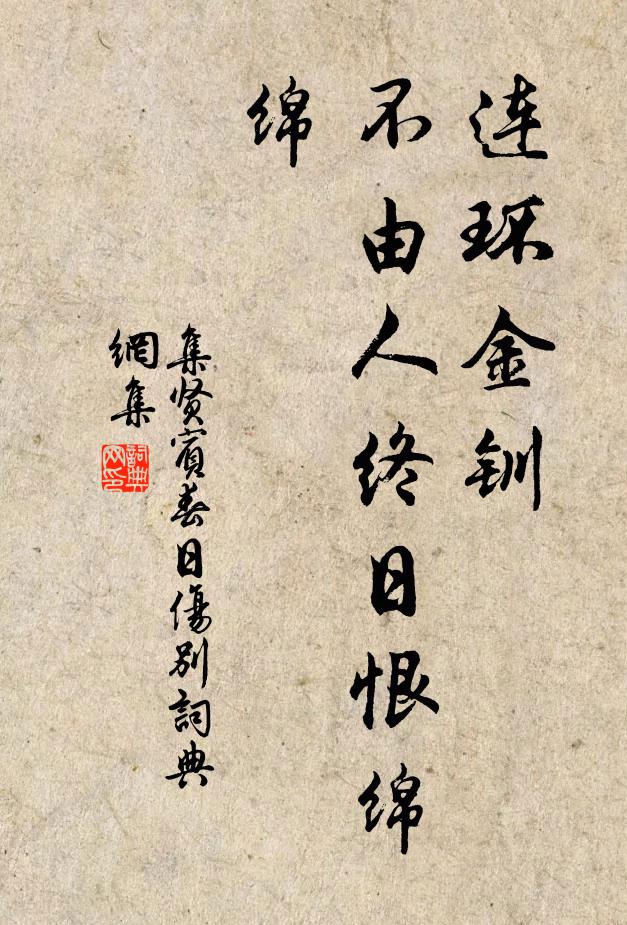 连环金钏
不由人终日恨绵
绵
集贤宾春日傷别詞典
網集
詞典
网印